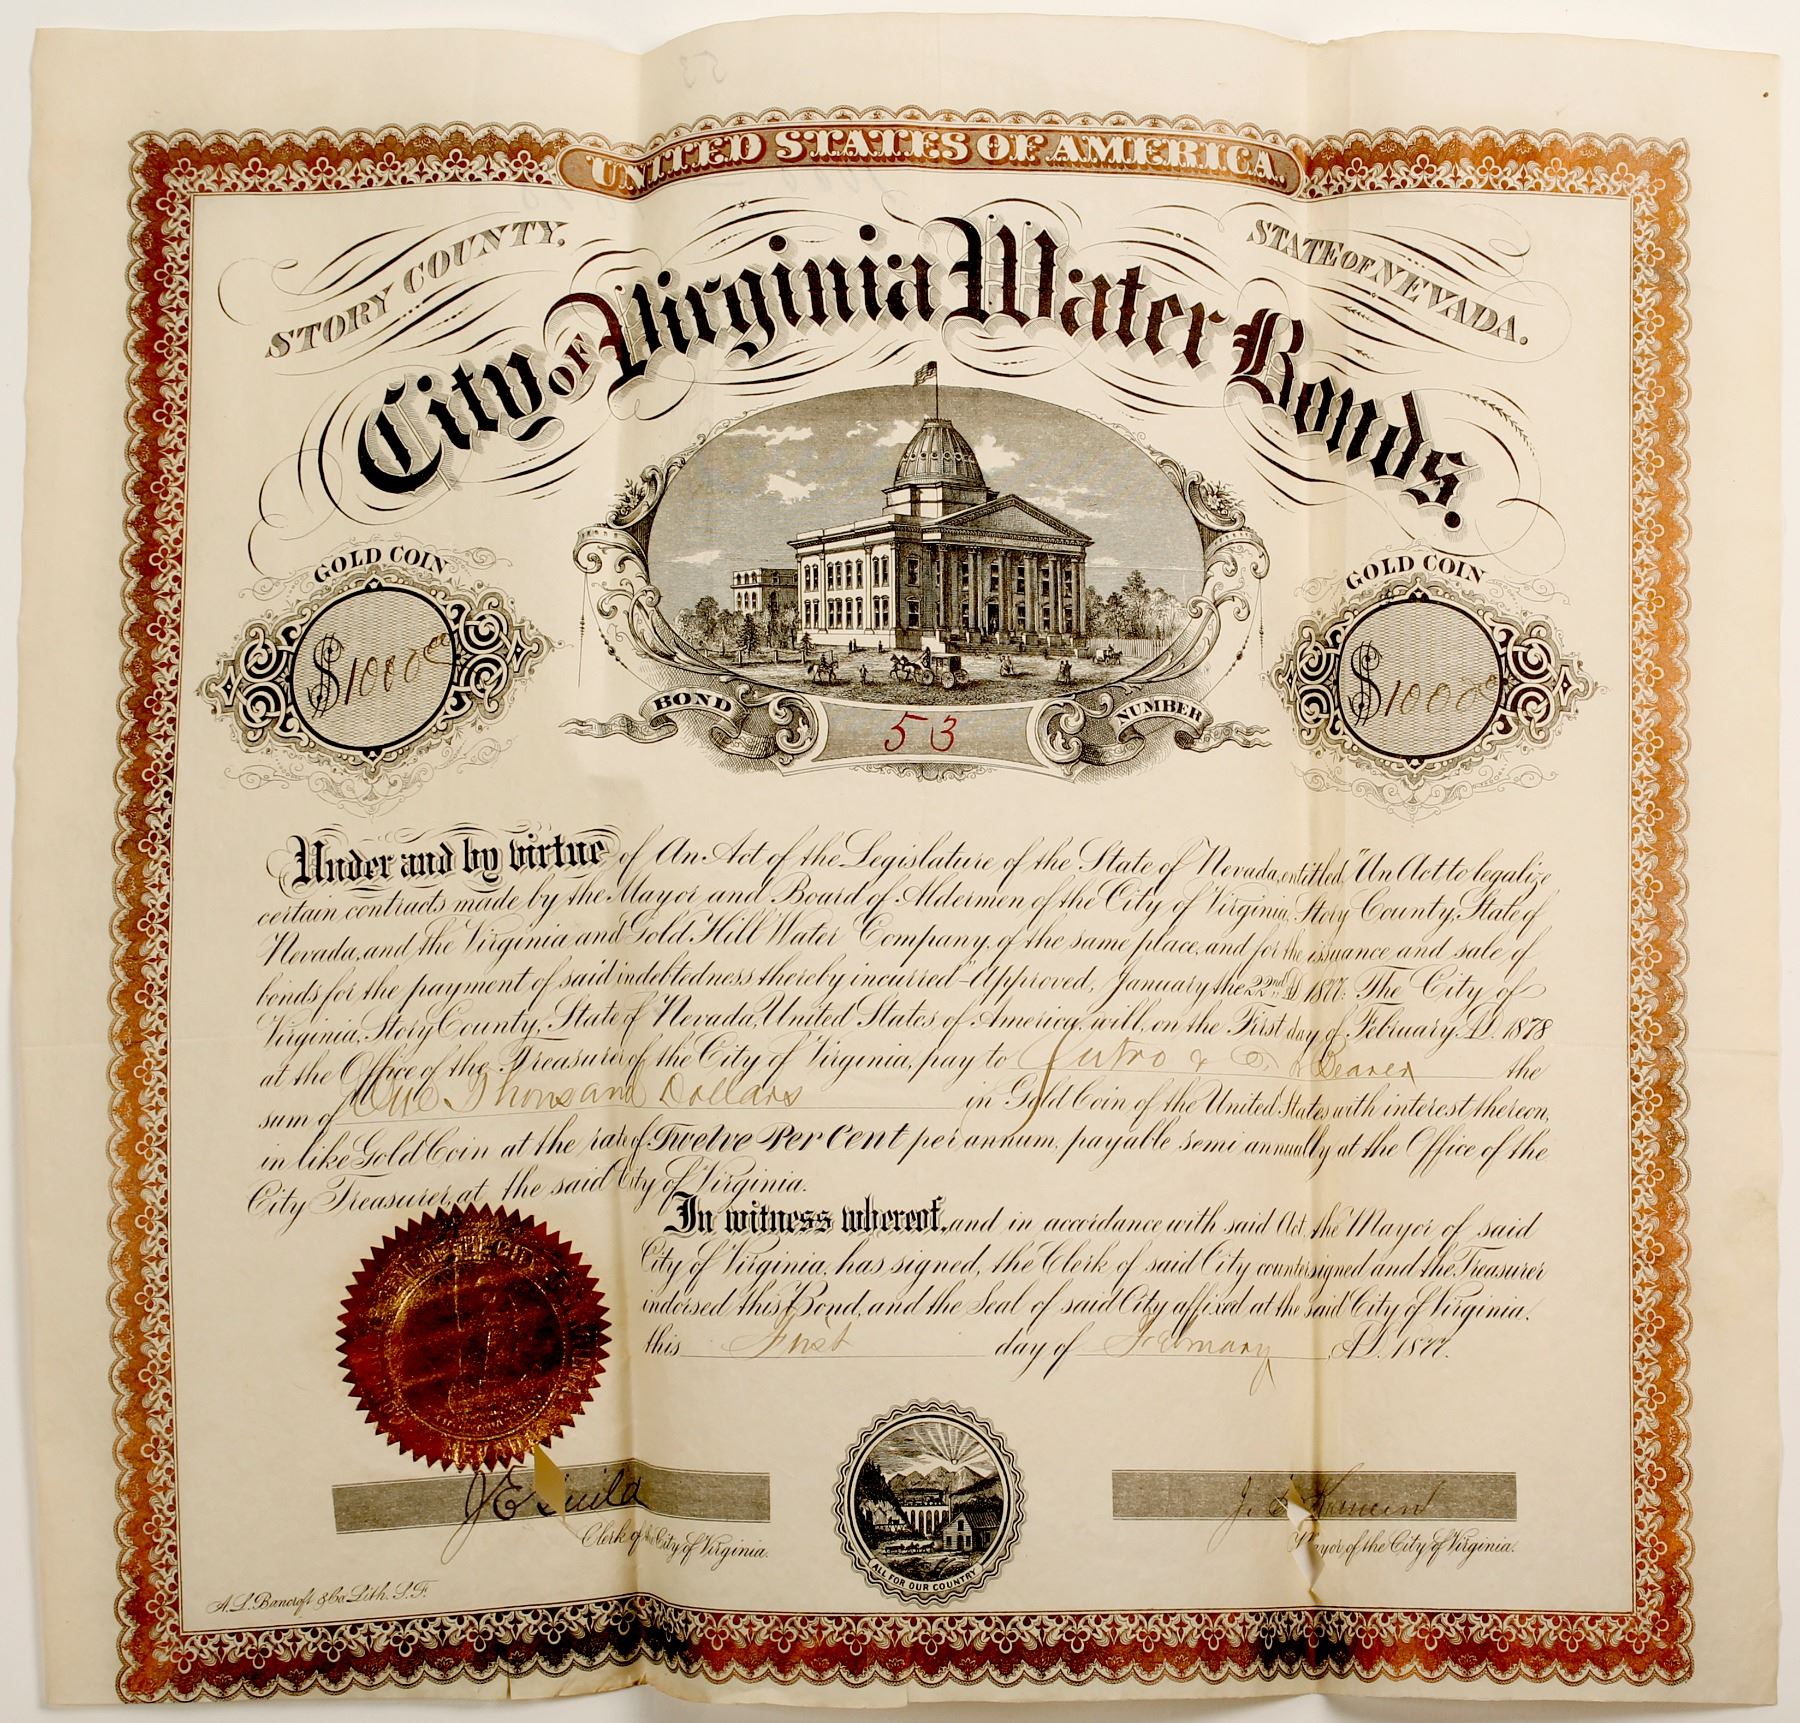 UNITED STATES OF AMERICA.
STORY COUNTY,
STATE OF NEVADA.
City OF Virginia Water Bonds.
GOLD COIN
GOLD COIN
$1000
$1000
BOND
NUMBER
53
Under and by virtue of An Act of the Legislature of the State of Nevada, entitled, "An Act, to legalize
certain contracts made by the Mayor and Board of Aldermen of the City of Virginia, Story County, State of
Nevada, and the Virginia and Gold Hill Water Company, of the same place, and for the issuance and sale of
bonds for the payment of said indebtedness thereby incurred" Approved, January the 22nd AD 1877. The City of
Virginia, Story County, State of Nevada, United States of America, will, on the First day of February A.D. 1878
at the Office of the Treasurer of the City of Virginia, pay to Sutro & Co. or Bearer the
sum of One Thousand Dollars in Gold Coin of the United States with interest thereon,
in like Gold Coin at the rate of Twelve Per Cent per annum, payable semi annually at the Office of the
City Treasurer, at the said City of Virginia.
In witness whereof, and in accordance with said Act, the Mayor of said
City of Virginia, has signed, the Clerk of said City countersigned and the Treasurer
indorsed this Bond, and the Seal of said City affixed at the said City of Virginia.
this First day of February A.D. 1877.
NEVADA
J E Guild
Clerk of the City of Virginia.
Mayor of the City of Virginia.
ALL FOR OUR COUNTRY
A. L. Bancroft & Co. Lith. S. F.